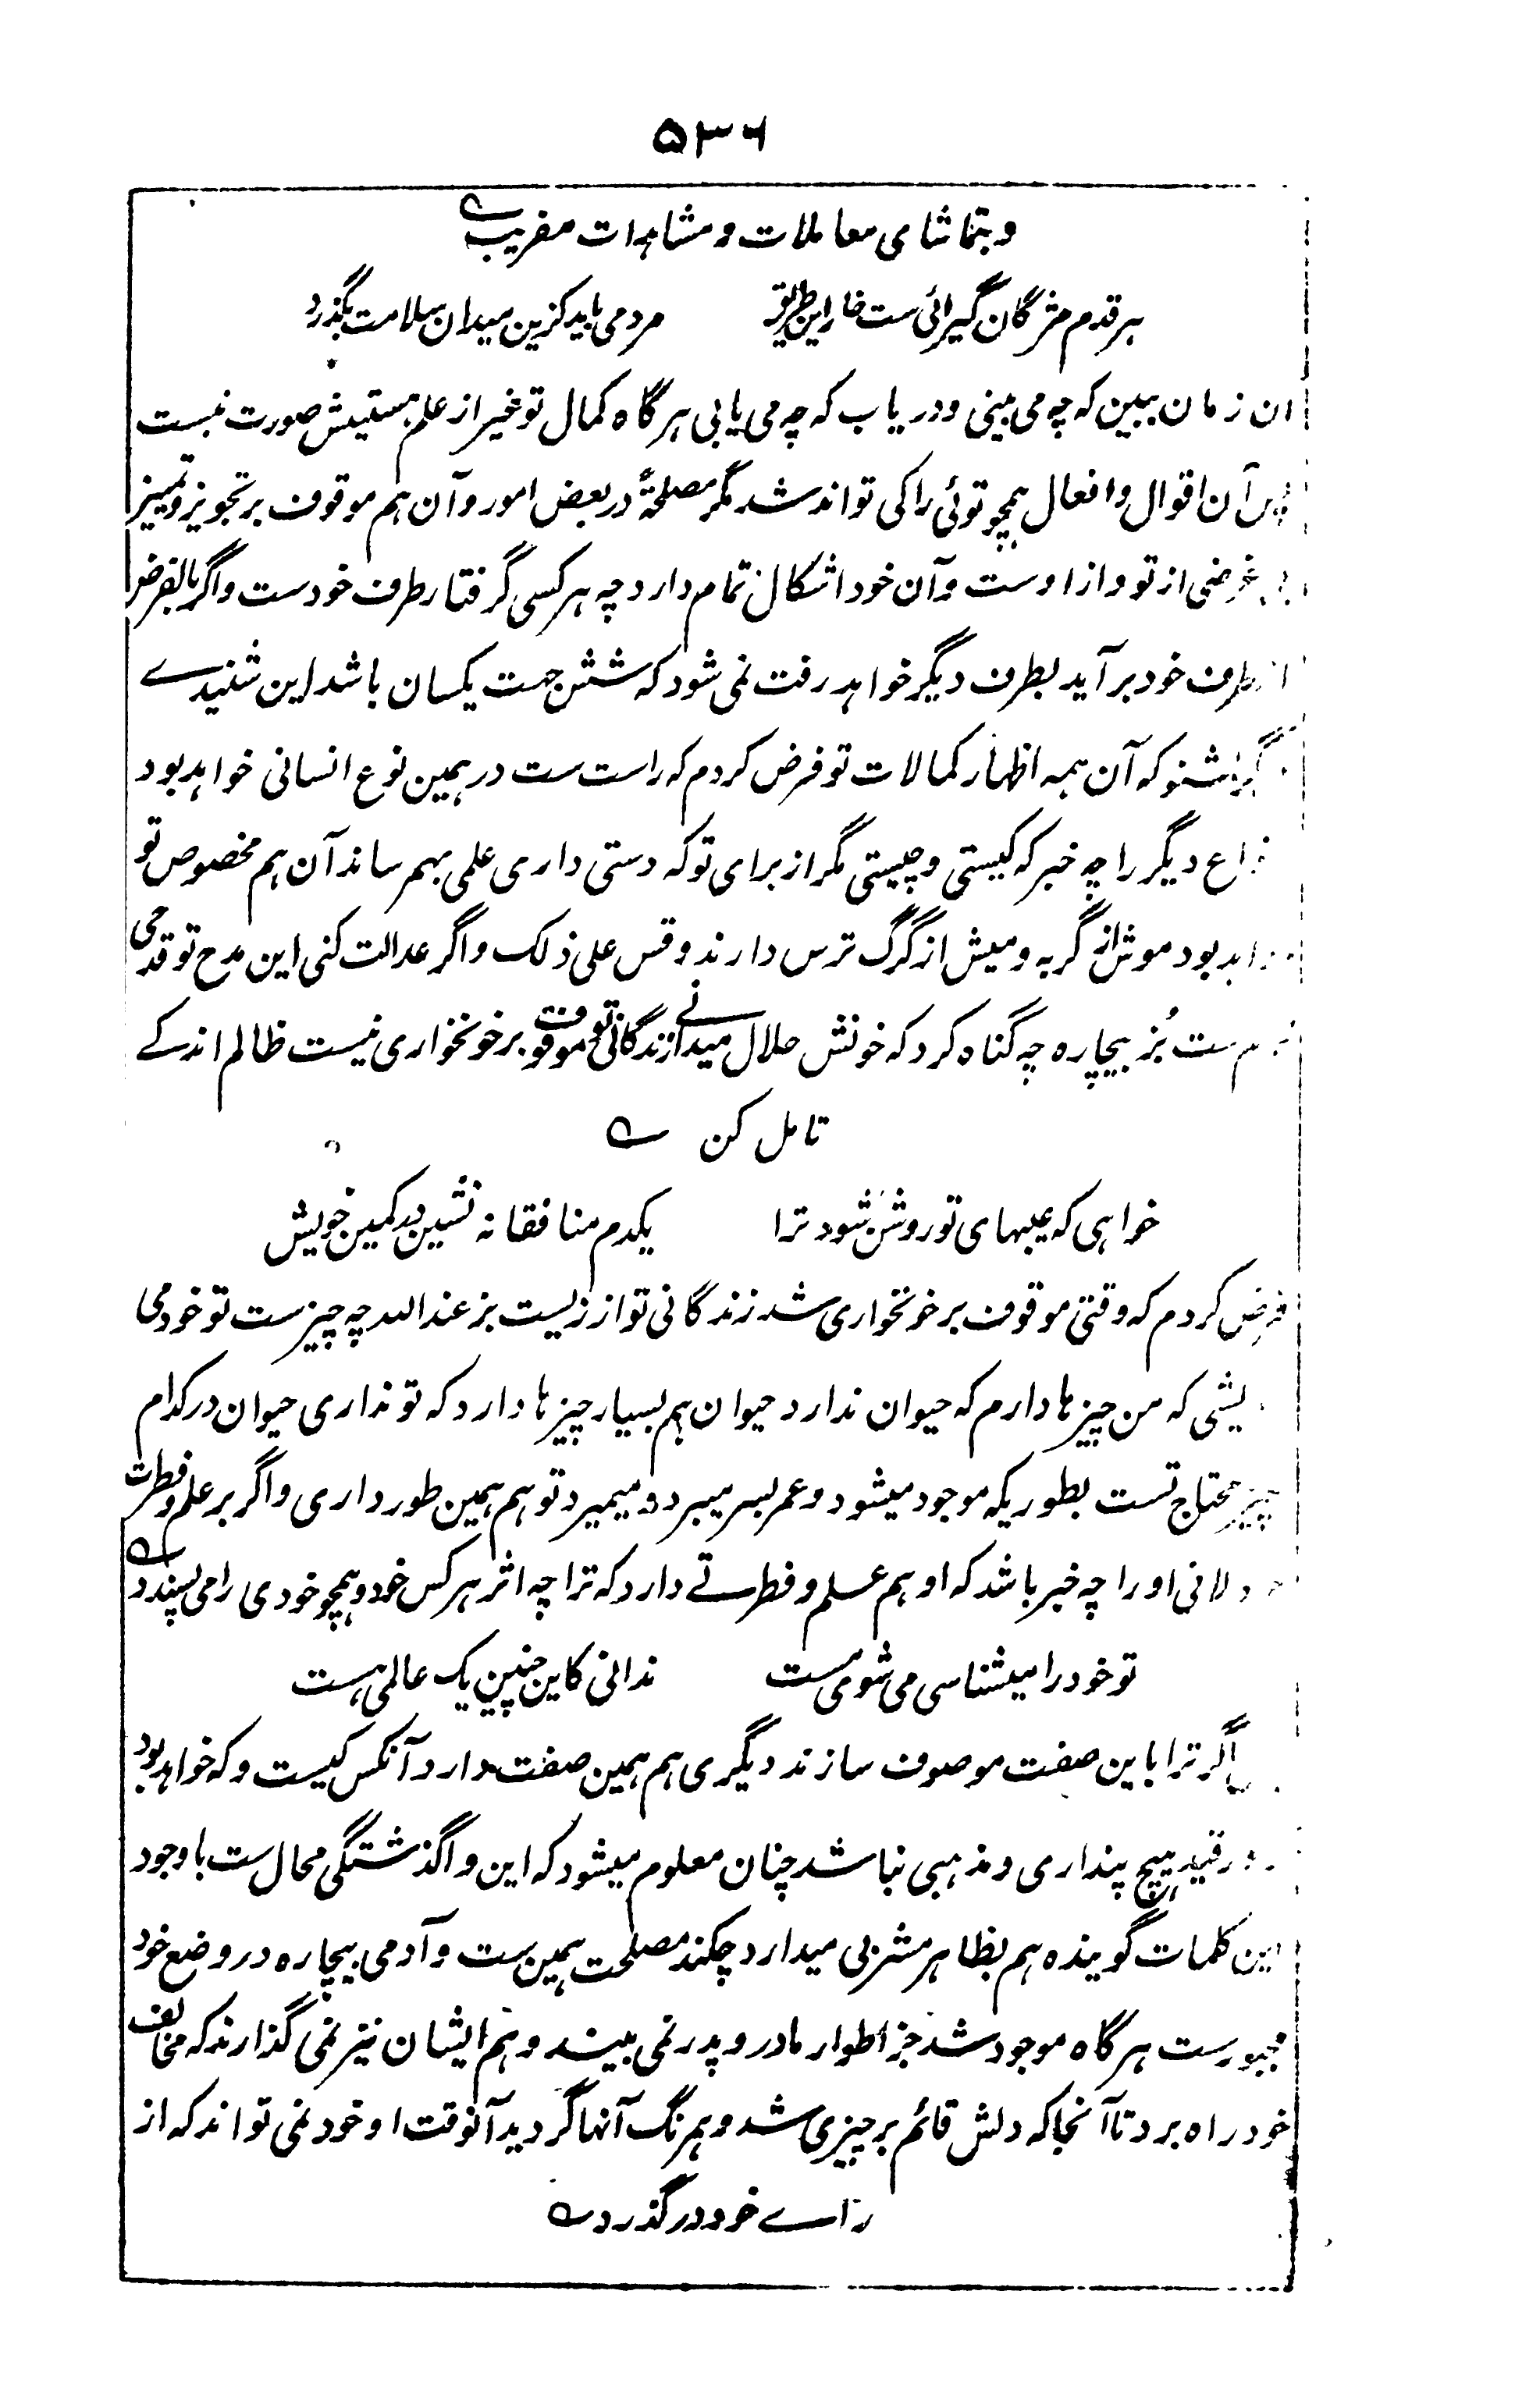 ۵۳۶
و بتماشای معاملات و مشاهدات مفریب
هر قدم مژگان گیرائی ست خار این طریق مرد می باید کزین میدان سلامت بگذرد
ان زمان ببین که چه می بینی و دریاب که چه می یابی هرگاه کمال تو غیر از علم هستیش صورت نبست
پس آن اقوال و افعال همچو توئی را کی تواند شد مگر مصلحةً در بعض امور و آن هم موقوف بر تجویز و تمییز
غرضی از تو و از اوست و آن خود اشکال تمام دارد چه هر کسی گرفتار طرف خودست و اگر بالفرض
طرف خود برآید بطرف دیگر خواهد رفت نمی شود که شش جهت یکسان باشد این شنیدے
بشنو که آن همه اظهار کمالات تو فرض کردم که راست ست در همین نوع انسانی خواهد بود
دیگر را چه خبر که کیستی و چیستی مگر از برای تو که دستی داری علمی بهم رساند آن هم مخصوص تو
بود موش از گربه و میش از گرگ ترس دارند و قس علی ذلک و اگر عدالت کنی این مدح تو قدحی
ست بُز بیچاره چه گناه کرد که خونش حلال میدانے زندگانی تو موقوف بر خونخواری نیست ظالم اندکے
تامل کن
خواهی که عیبهای تو روشن شود ترا یکدم منافقانه نشین در کمین خویش
فرض کردم که وقتی موقوف بر خونخواری شد زندگانی تو از زیست بز عند الله چه چیزست تو خود می
که من چیزها دارم که حیوان ندارد حیوان هم بسیار چیزها دارد که تو نداری حیوان در کدام
چیز محتاج تست بطوریکه موجود میشود و عمر بسر میبرد و میمیرد تو هم همین طور داری و اگر بر علم و فطرت
او را چه خبر باشد که او هم علم و فطرتے دارد که ترا چه اثر هر کس خود و همچو خودی را می پسندد
تو خود را میشناسی می شوی مست ندانی کاین چنین یک عالمی هست
اگر ترا باین صفت موصوف سازند دیگری هم همین صفت دارد آنکس کیست و که خواهد بود
قید هیچ پنداری و مذهبی نباشد چنان معلوم میشود که این واگذشتگی محال ست با وجود
این کلمات گوینده هم بظاهر مشربی میدارد چکند مصلحت همین ست و آدمی بیچاره در وضع خود
مجبورست هرگاه موجود شد جز اطوار مادر و پدر نمی بیند و هم ایشان نیز نمی گذارند که مخالف
خود راه برد تا آنجا که دلش قائم بر چیزی شد و همرنگ آنها گردید آنوقت او خود نمی تواند که از
راے خود درگذرد